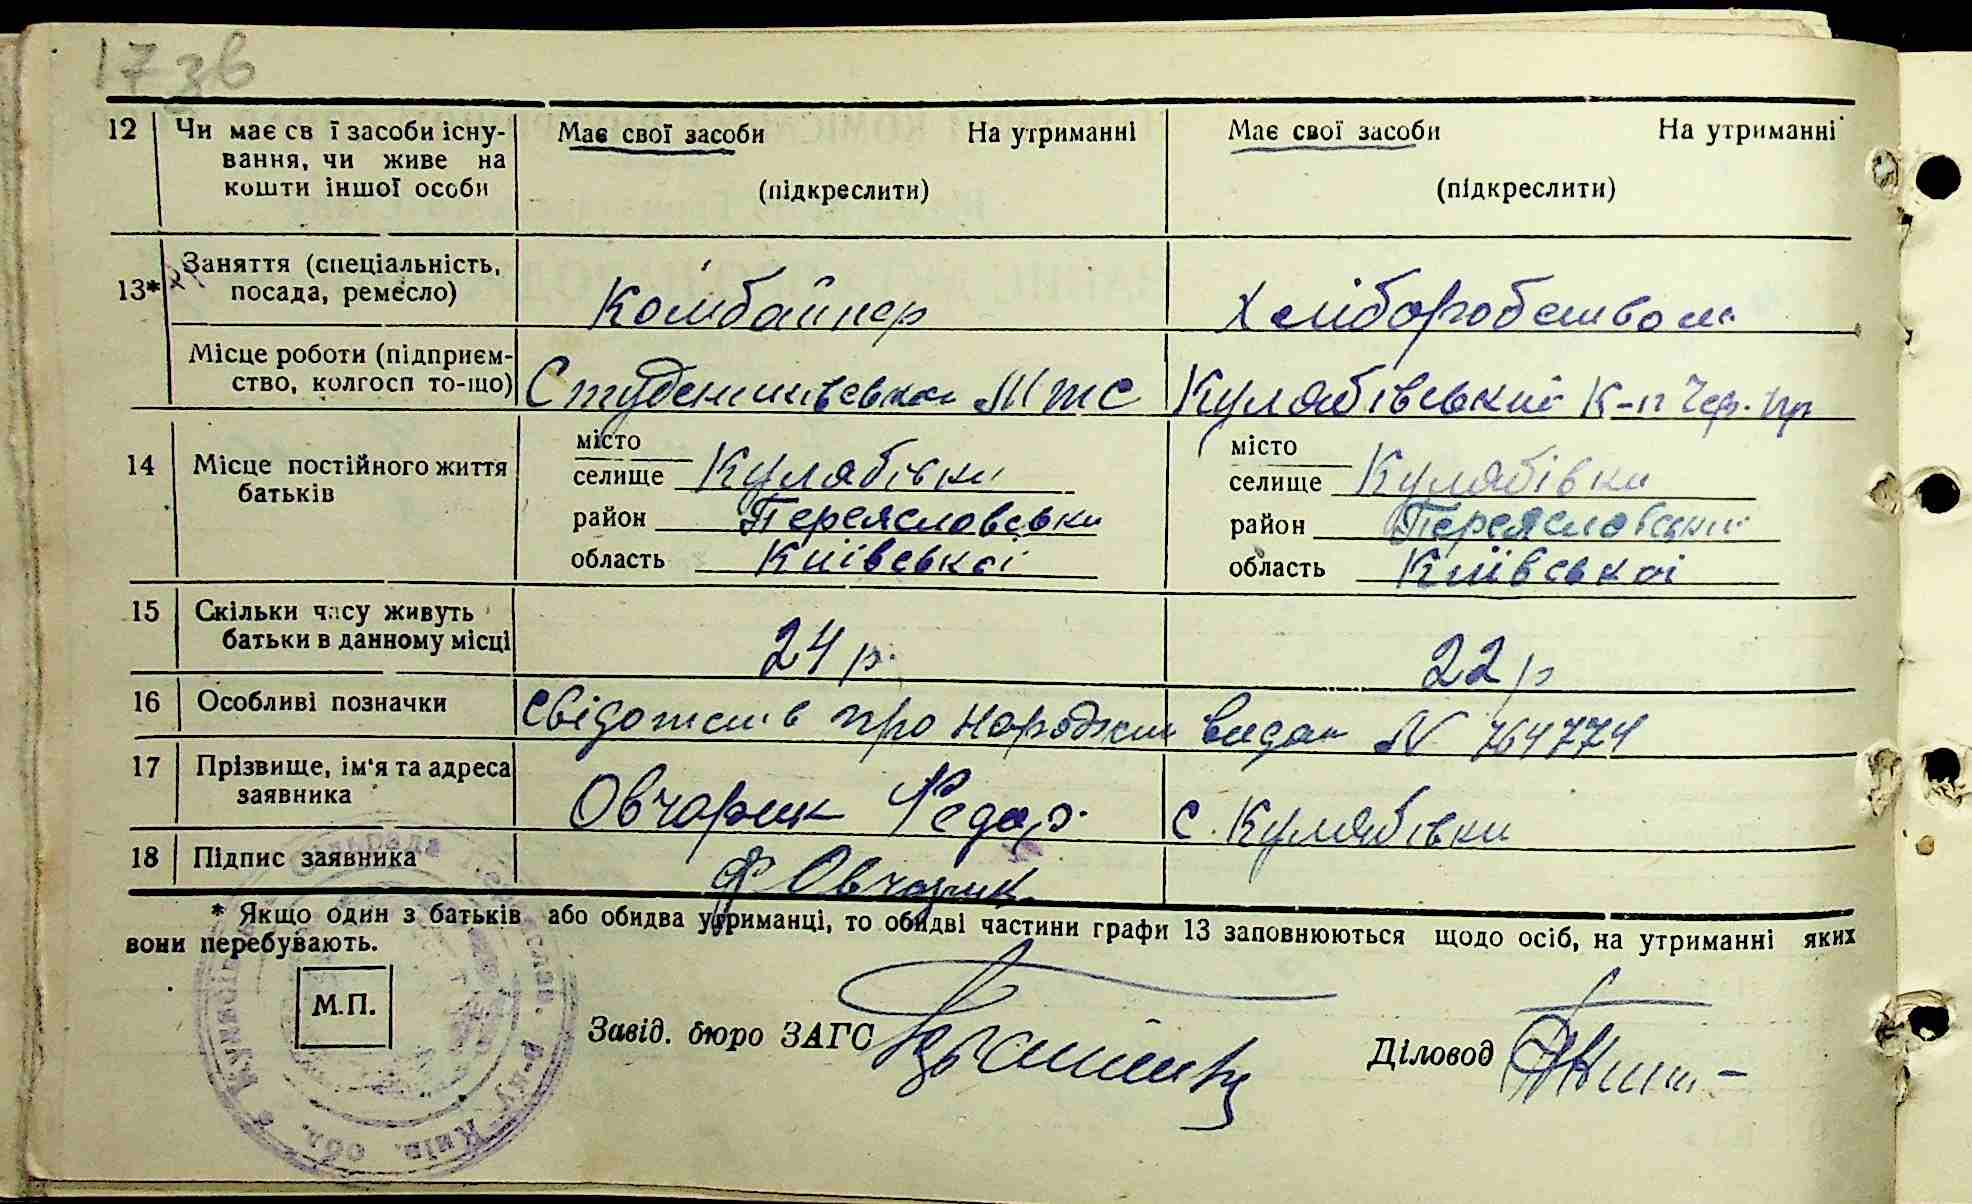 17 зв
12 Чи має св ї засоби існу- Має свої засоби На утриманні Має свої засоби На утриманні
вання, чи живе на
кошти іншої особи (підкреслити) (підкреслити)
13* Заняття (спеціальність,
посада, ремесло) Комбайнер Хліборобством
Місце роботи (підприєм-
ство, колгосп то-що) Студениківська МТС Кулябівський К-п Чер. пр
14 Місце постійного життя
батьків
місто місто
селище Кулябівки селище Кулябівки
район Переясловськи район Переясловський
область Київської область Київської
15 Скільки часу живуть
батьки в данному місці 24 р. 22 р
16 Особливі позначки Свідотств про народжен видан № 764774
17 Прізвище, ім'я та адреса
заявника Овчарик Федор. с. Кулябівки
18 Підпис заявника Ф Овчарик
* Якщо один з батьків або обидва утриманці, то обидві частини графи 13 заповнюються щодо осіб, на утриманні яких
вони перебувають.
М.П.
Завід. бюро ЗАГС Діловод